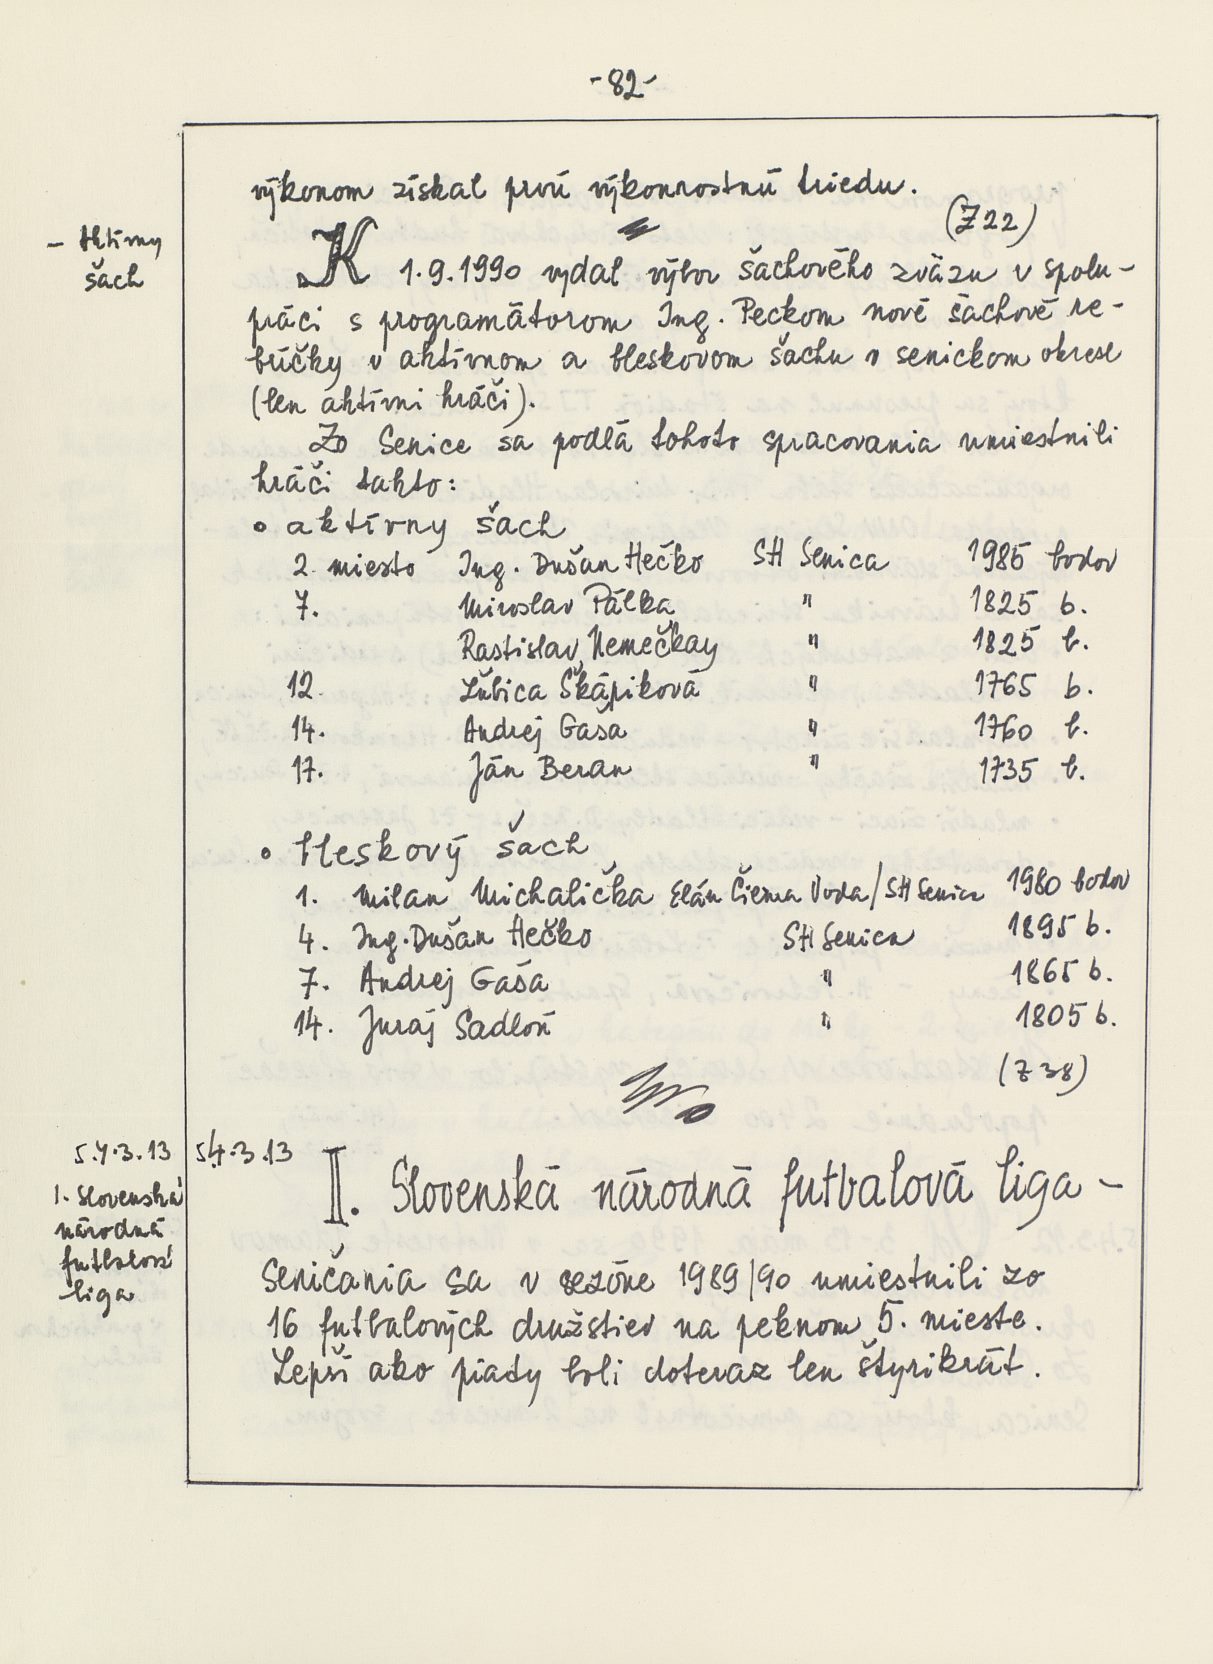 -82-
výkonom získal prvú výkonnostnú triedu.
(Z22)
- Aktívny
šach
K 1.9.1990 vydal výbor šachového zväzu v spolu-
práci s programátorom Ing. Peckom nové šachové re-
bríčky v aktívnom a bleskovom šachu v senickom okrese
(len aktívni hráči).
Zo Senice sa podľa tohoto spracovania umiestnili
hráči takto:
o aktívny šach
2. miesto Ing. Dušan Hečko SH Senica 1985 bodov
7. Miroslav Pálka " 1825 b.
Rastislav Nemečkay " 1825 b.
12. Ľubica Škápiková " 1765 b.
14. Andrej Gaša " 1760 b.
17. Ján Beran " 1735 b.
o bleskový šach
1. Milan Michalička Elán Čierna Voda/SH Senica 1980 bodov
4. Ing. Dušan Hečko SH Senica 1895 b.
7. Andrej Gaša " 1865 b.
14. Juraj Sadloň " 1805 b.
(Z38)
5.4.3.13
I. Slovenská
národná
futbalová
liga
5.4.3.13
I. Slovenská národná futbalová liga -
Seničania sa v sezóne 1989/90 umiestnili zo
16 futbalových družstiev na peknom 5. mieste.
Lepší ako piaty boli doteraz len štyrikrát.